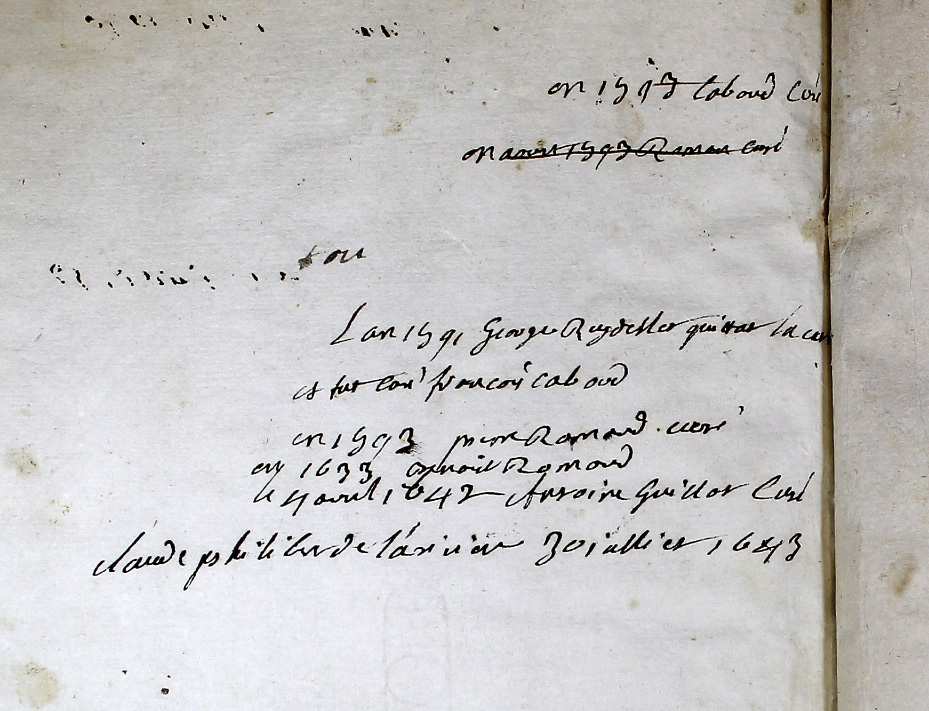 en 1593 Caboud Curé
en avril 1593 Ramau curé
ou
Lan 1591 George Reydellet quittat la cur
et fut Curé francois caboud
en 1593 pierre Ramaud curé
en 1633 benoit Ramaud
le 4 avril 1642 Antoine Guillot Curé
claude philibert de lariviere 30 juilliet 1643